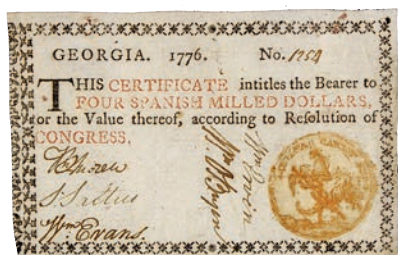 GEORGIA. 1776. No. 1754
THIS CERTIFICATE intitles the Bearer to
FOUR SPANISH MILLED DOLLARS,
or the Value thereof, according to Resolution of
CONGRESS.
Wm Evans.